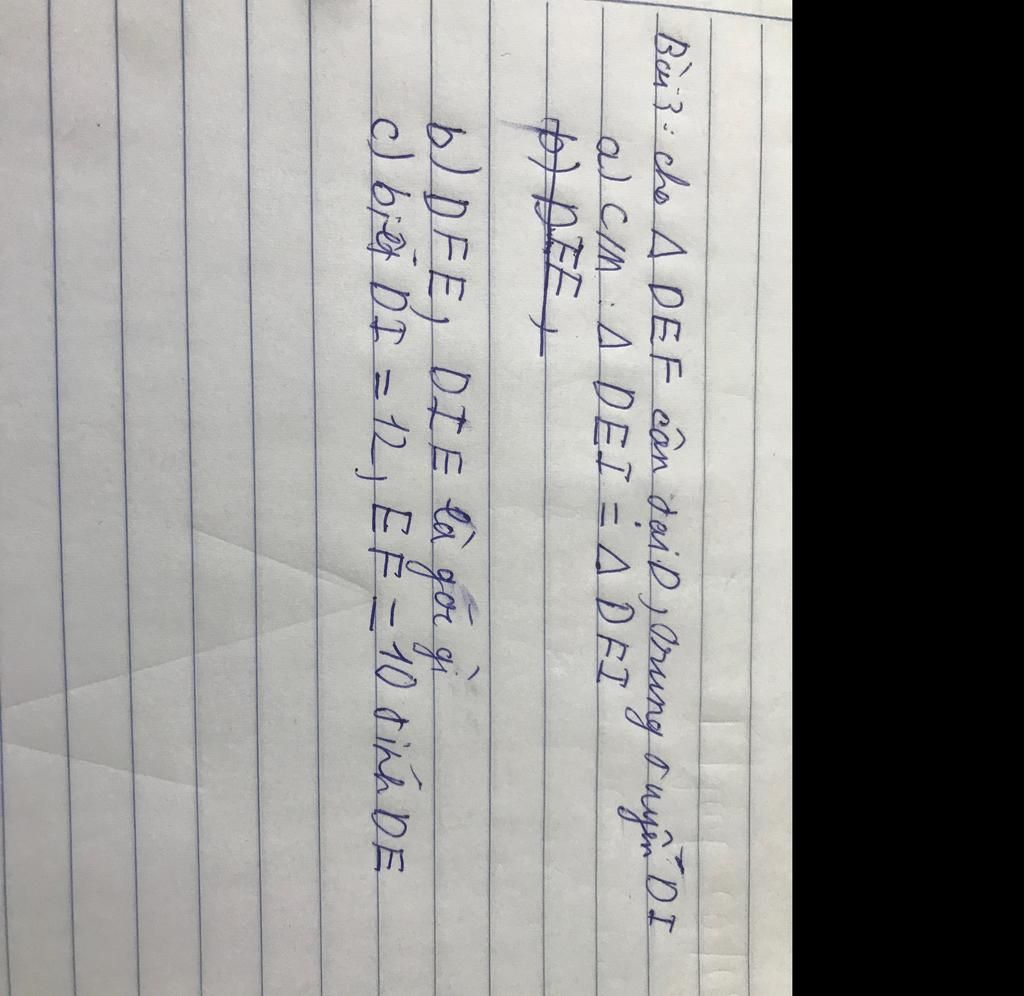 Bài 3: cho Δ DEF cân tại D, trung tuyến DI
a) CM: Δ DEI = Δ DFI
b) DEF,
b) DFE, DIE là góc gì
c) biết DI = 12, EF = 10 tính DE